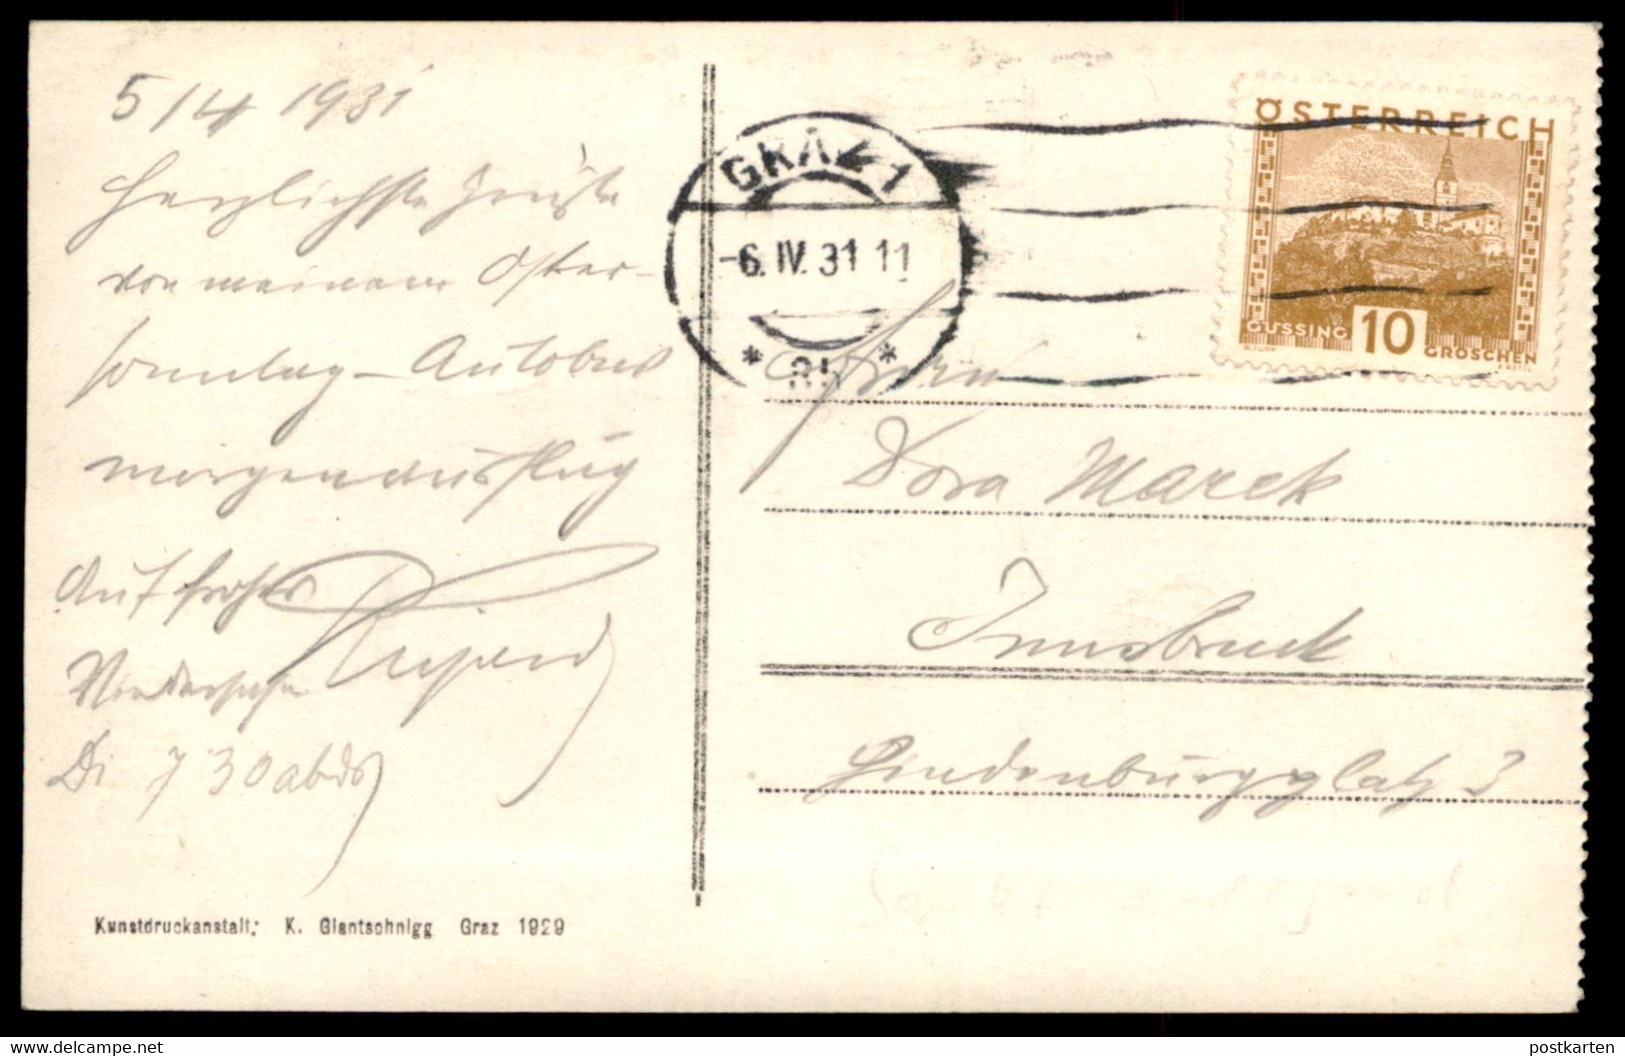 5/4 1931
Herzlichste Grüße
von meinem Oster-
sonntag - Autobus
morgenausflug
Auf frohes
Wiedersehn
Di 7 30 abds
Kunstdruckanstalt: K. Glantschnigg Graz 1929
GRAZ 1
-6. IV. 31 11
* *
ÖSTERREICH
GÜSSING 10 GROSCHEN
Dora Marek
Innsbruck
Hindenburgplatz 3
www.delcampe.net
postkarten